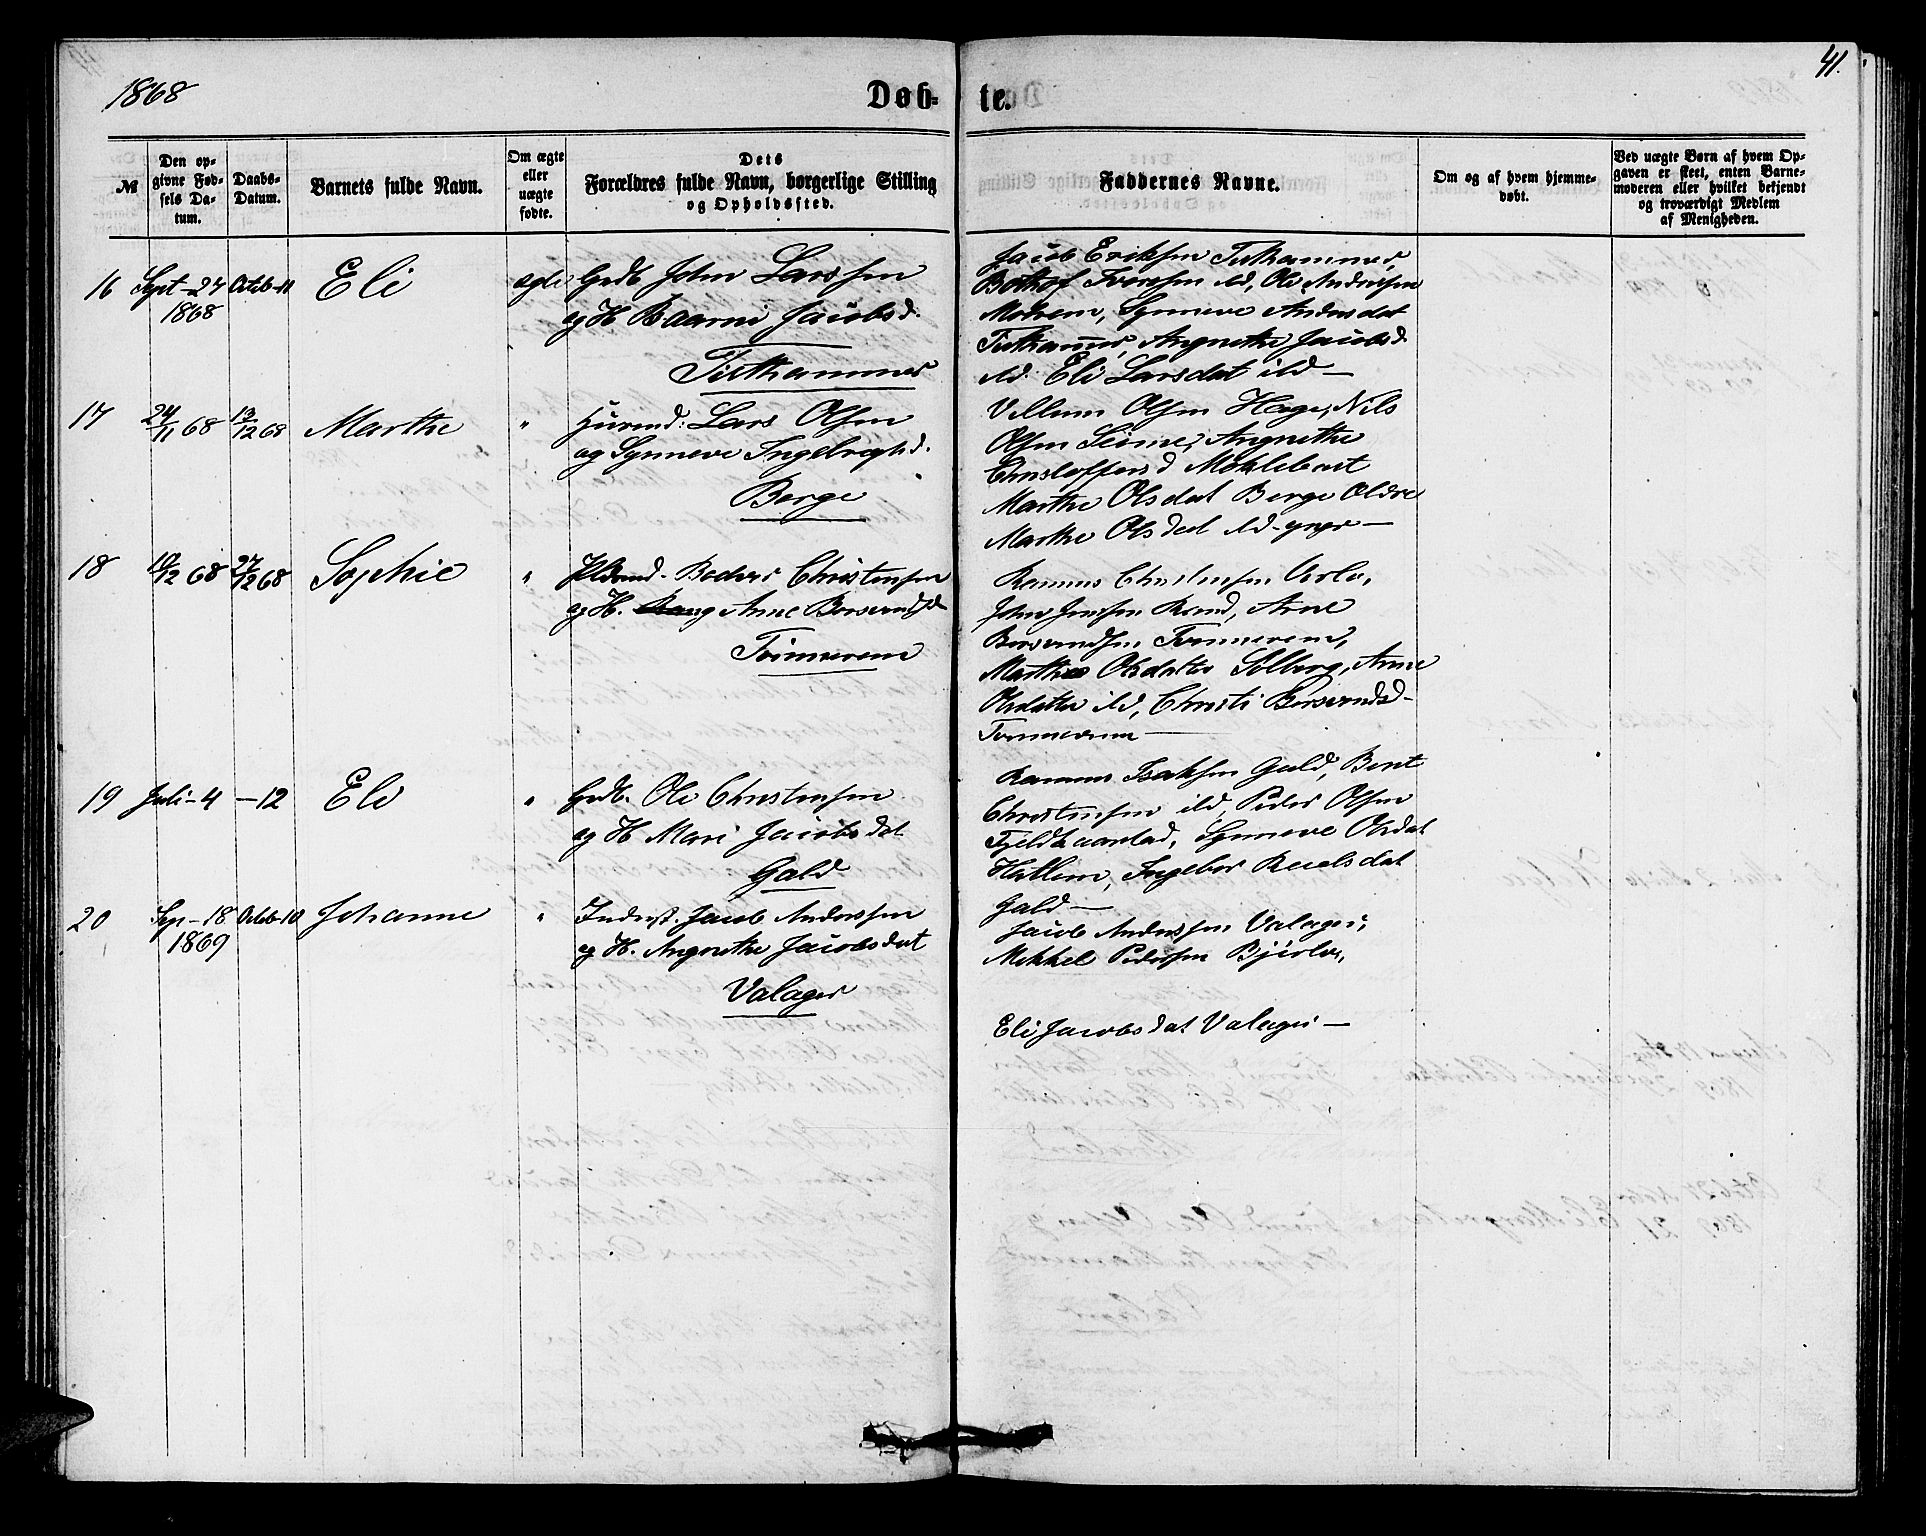 1868
Døb-
te.
41.
№
Den op-
givne Fød-
sels Da-
tum.
Daabs-
Datum.
Barnets fulde Navn.
Om ægte
eller
uægte
fødte.
Dets
Forældres fulde Navn, borgerlige Stilling
og Opholdssted.
Faddernes Navne.
Om og af hvem hjemme-
døbt.
Ved uægte Børn af hvem Op-
gaven er skeet, enten Barne-
moderen eller hvilket bekjendt
og troværdigt Medlem
af Menigheden.
16 Sept-27 Octob-11 Eli ægte Grdb John Larssen
1868
og H Baarni Jacobsd.
Jacob Eriksen
Iverssen ild, Ole Andersen
Synneve Andersdat
Angnethe Jacobsd
ild. Eli Larsdat ild-
17 24/11 68 13/12 68 Marthe " Huusmd: Lars Olsen
og Synneve
Berge
Villum Olsen Hage, Nils
Olsen Seime, Angnethe
Christoffersd Møklebust
Marthe Olsdat Berge ældre
Marthe Olsdat ild yngr-
18 10/12 68 27/12 68 Sophie " Christensen
og H. Anne
Tvinnerem
Rasmus Christensen
John Jenssen Rand, Arne
Tvinnerem,
Marthe Olsdatter Solberg, Anne
Olsdatter ild, Christi
Tvinnerem-
19 Juli-4 -12 Eli " Grdb. Ole Christensen
og H Mari Jacobsdat
Gald
Rasmus Isaksen Gald, Bent
Christensen ild, Peder Olsen
Synneve Olsdat
Ingebor
Gald-
20 Sep-18 Octob-10 Johanne " Inderst. Jacob Anderssen
1869
og H. Angnethe Jacobsdat
Valager
Jacob Anderssen Valager,
Mekkel Pedersen Bjørlo,
Eli Jacobsdat Valager-